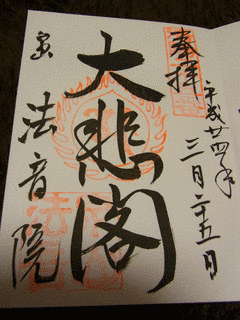 奉拝
平成廿四年
三月二十五日
大悲閣
法音院